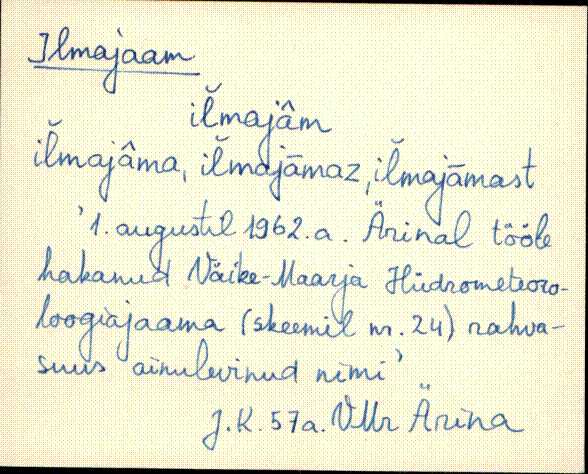 Ilmajaam
iĺ̆majâm
iĺ̆majâma, iĺ̆majāmaz, iĺ̆majāmast
'1. augustil 1962.a. Ärinal tööle
hakanud Väike-Maarja Hüdrometeoro-
loogiajaama (skeemil nr. 24) rahva-
suus ainulevinud nimi'
J.K. 57a. VMr Ärina